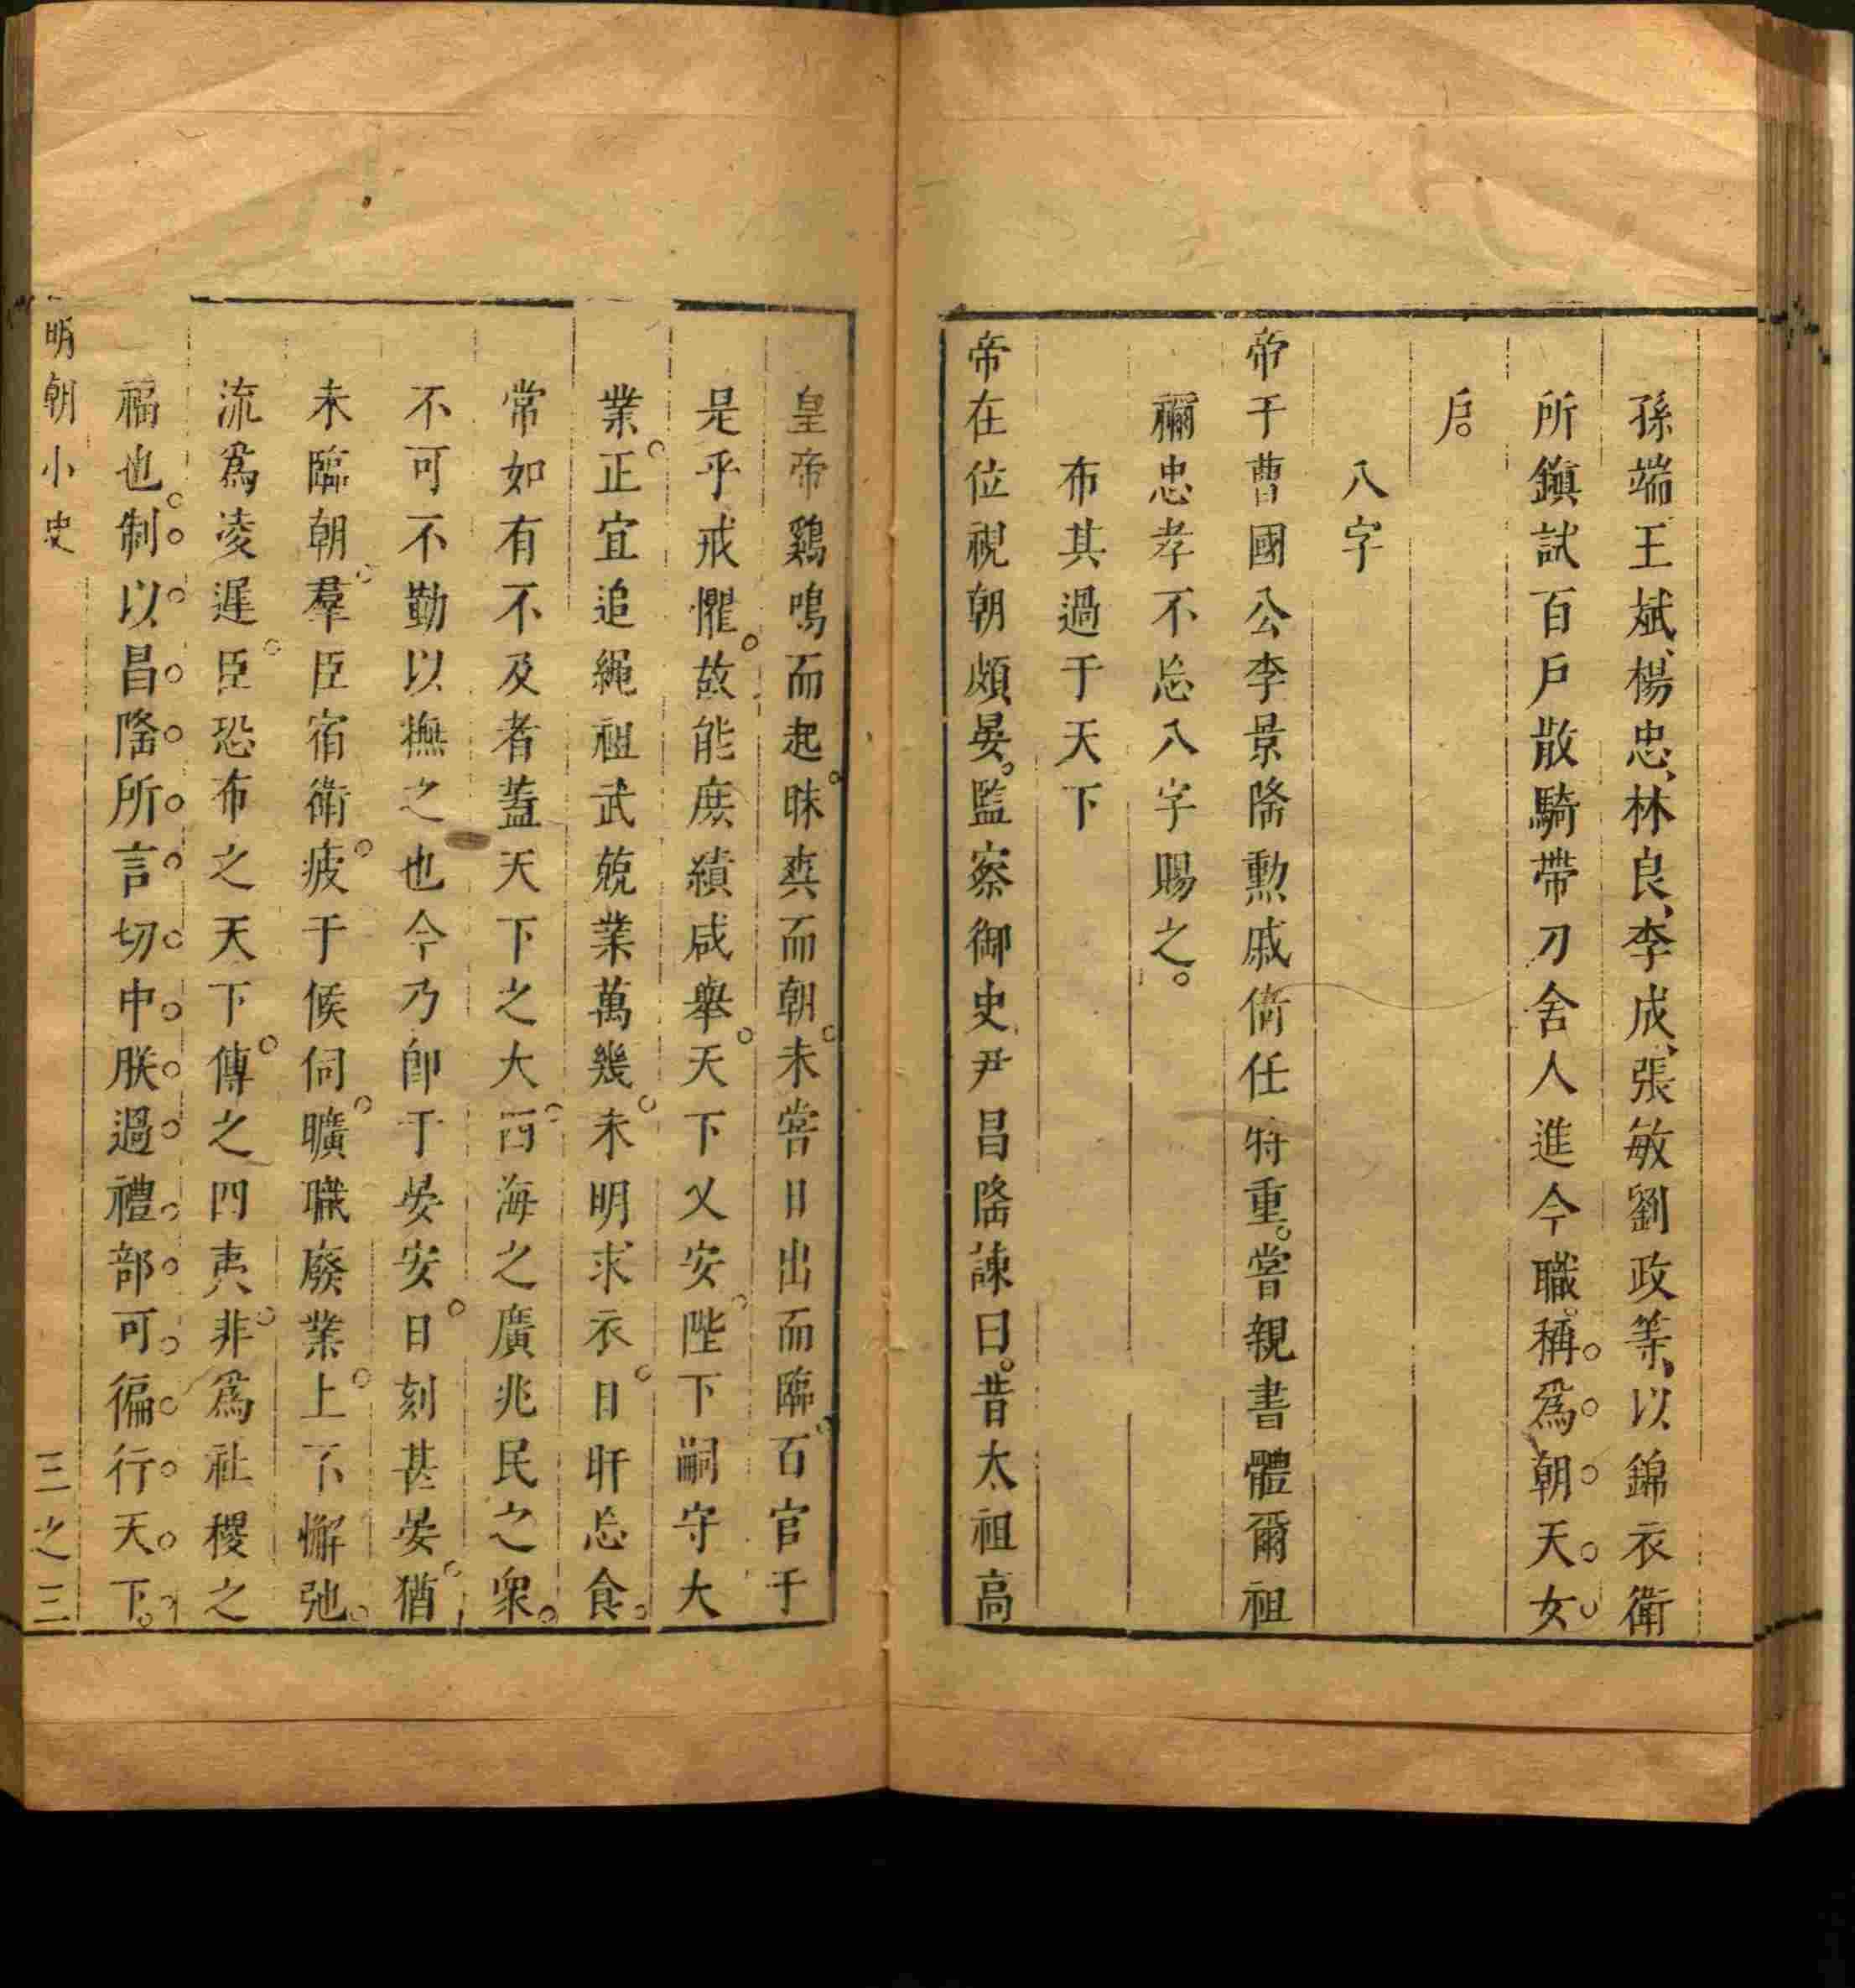 孫端王斌、楊忠、林良、李成、張敏劉政等、以錦衣衛
所鎮試百戶散騎帶刀舍人進今職。稱爲朝天女
戶。
八字
帝于曹國公李景隆勲戚倚任特重。嘗親書體爾祖
禰忠孝不忘八字賜之。
布其過于天下
帝在位視朝頗晏。監察御史尹昌隆諫曰。昔太祖高
皇帝鷄鳴而起。昧爽而朝。未嘗日出而臨百官。于
是乎戒懼。故能庻績咸舉。天下乂安。陛下嗣守大
業。正宜追繩祖武兢業萬幾。未明求衣。日旰忘食。
常如有不及者蓋天下之大。四海之廣兆民之衆。
不可不勤以撫之也今乃卽于晏安。日刻甚晏。猶
未臨朝。羣臣宿衛。疲于候伺。曠職廢業。上下懈弛。
流爲凌遲。臣恐布之天下。傳之四夷。非爲社稷之
福也。制以昌隆所言切中朕過禮部可徧行天下。
明朝小史
三之三